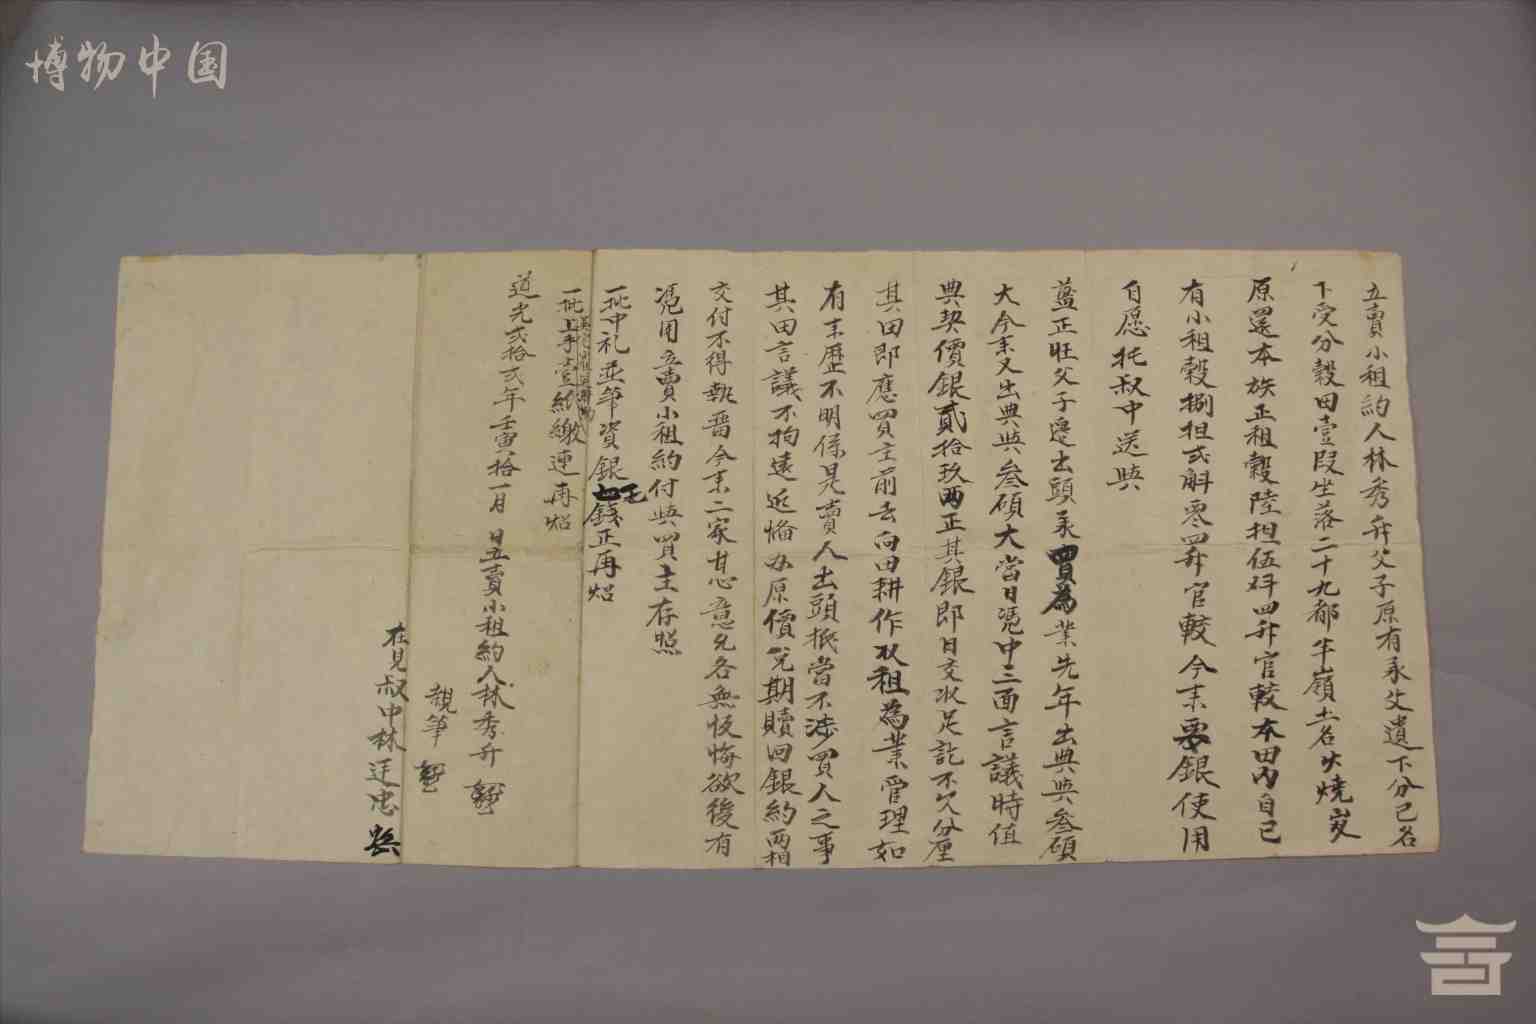 博物中国
立賣小租約人林秀升父子原有承父遺下分己名
下受分穀田壹段坐落二十九都牛嶺土名火燒
原還本族正租穀陸担伍斗四升官較本田內自己
有小租穀捌担弍斛零四升官較今来要銀使用
自愿托叔中送與
蓝正旺父子邊出頭承買為業先年出典與叁碩
大今来又出典與叁碩大當日凴中三面言議時值
典契價銀貳拾玖両正其銀即日交收足訖不欠分厘
其田即應買主前去向田耕作收租為業管理如
有来歷不明係是賣人出頭抵當不涉買人之事
其田言議不拘遠近俻办原價兌期贖回銀約両相
交付不得執畱今来二家甘心意允各無反悔欲後有
凴用立賣小租約付與買主存照
一批中礼並筆資銀七錢正再炤
一批上手壹紙繳連再炤
道光弍拾弍年壬寅拾一月 日立賣小租約人林秀升
親筆
在見叔中林廷忠